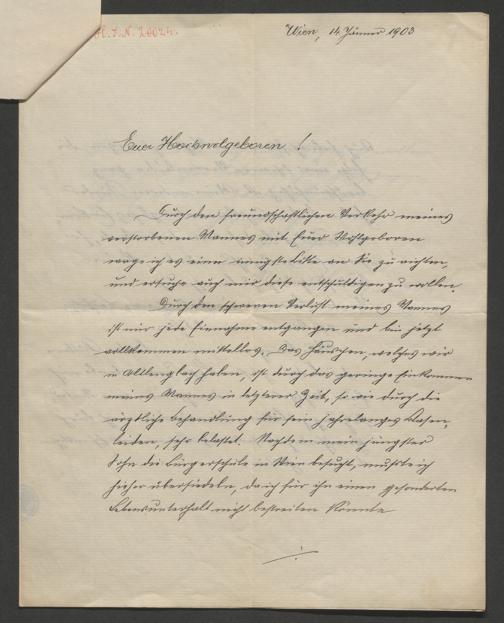 H.I.N. 20024.
Wien, 14. Jänner 1903
Euer Hochwolgeboren !
Durch den freundschaftlichen Verkehr meines
verstorbenen Mannes mit Euer Wohlgeboren
wage ich es eine innigste Bitte an Sie zu richten
und ersuche auch mir diese entschuldigen zu wollen.
Durch den schweren Verlust meines Mannes
ist mir jede Einnahme entgangen und bin jetzt
vollkommen mittellos. Das Häuschen, welches wir
in haben, ist durch das geringe Einkommen
meines Mannes in letzterer Zeit, so wie durch die
ärztliche Behandlung für sein jahrelanges
leiden, sehr belastet. Nachdem mein jüngster
Sohn die Bürgerschule in Wien besucht, mußte ich
hieher übersiedeln, da ich für ihn einen gesonderten
Lebensunterhalt nicht bestreiten konnte